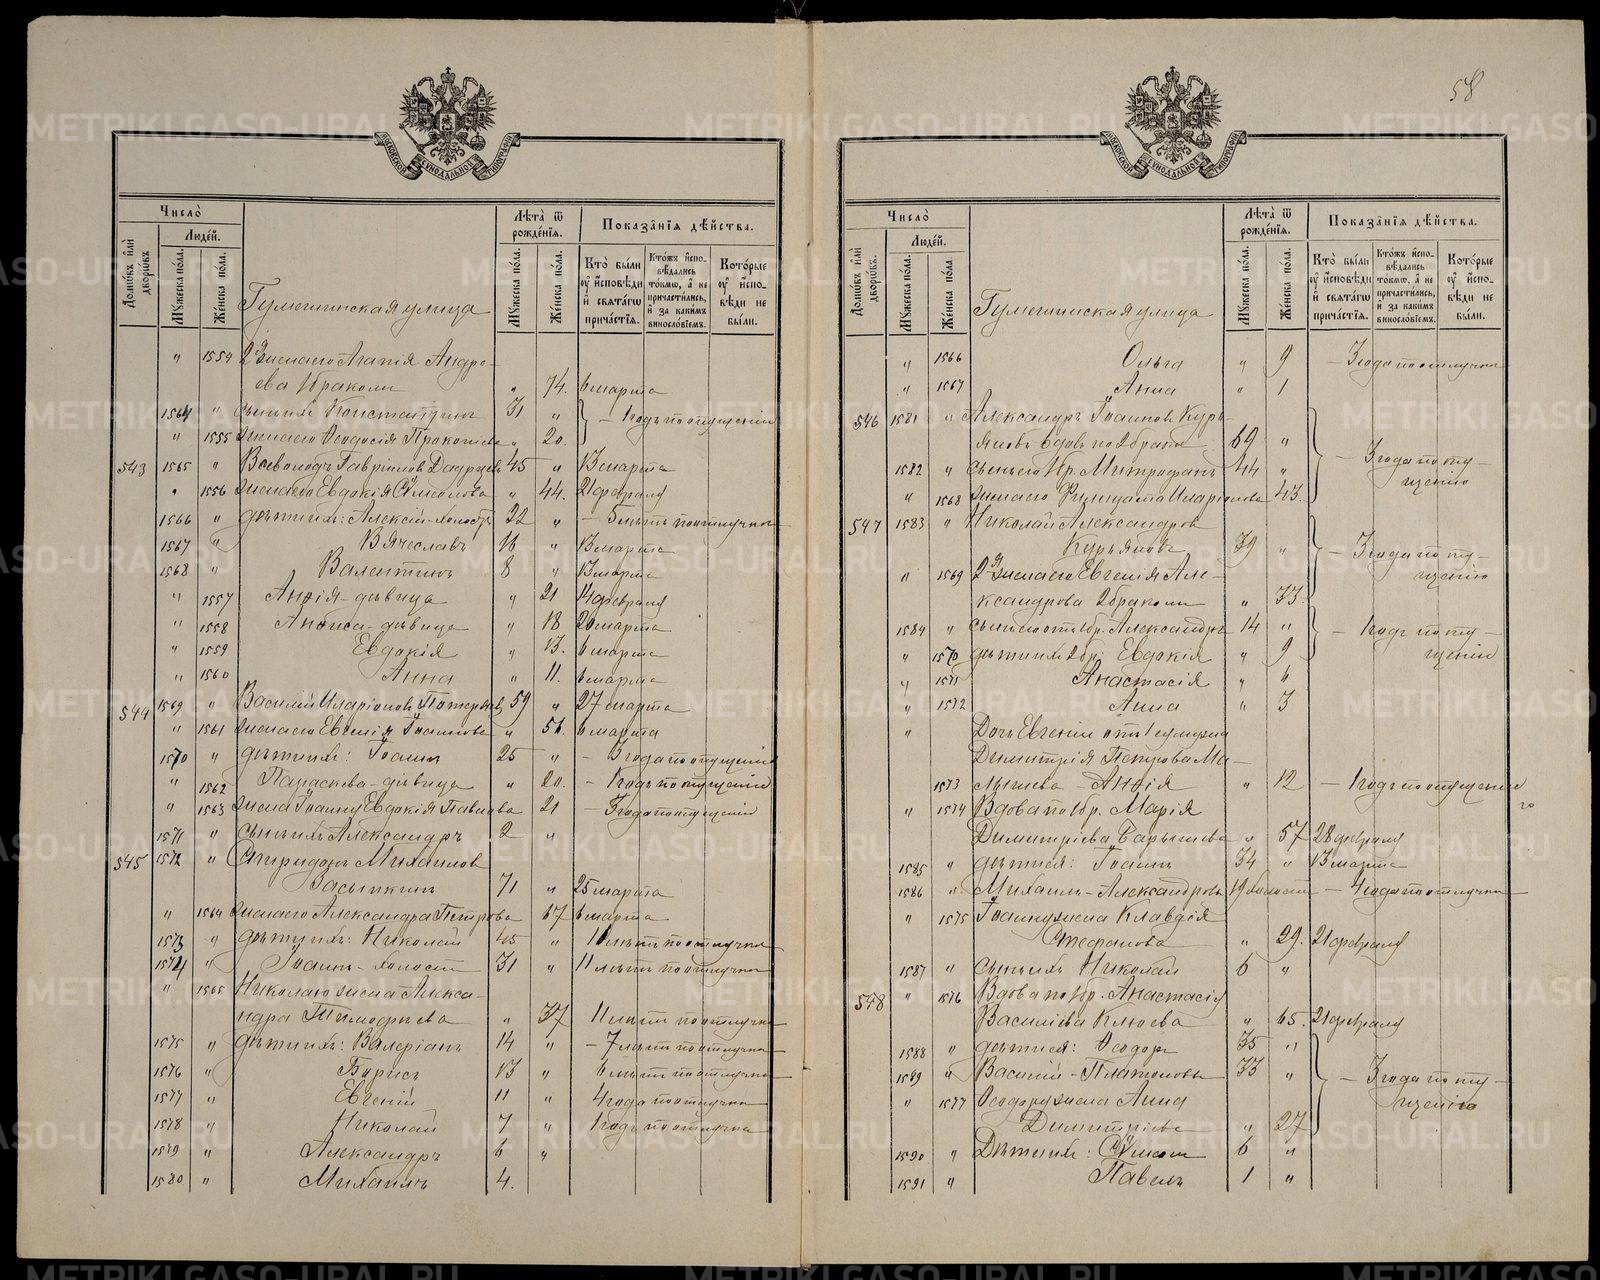 58
МОСКОВСКОЙ СѴНОДАЛЬНОЙ ТИПОГРАФІИ
Число̀
Домѡ́въ и҆лѝ дворѡ́въ.
Люде́й.
Мꙋжеска по́ла.
Же́нска по́ла.
Гумешинская улица
Лѣта̀ ѿ рожде́нїѧ.
Мꙋжеска по́ла.
Же́нска по́ла.
Показа̑нїѧ дѣ́йства.
Кто̀ бы́ли ᲂу҆ и҆́сповѣди и҆ свѧта́гѡ прича́стїѧ.
Кто́жъ и҆спо- вѣ́дались то́кмѡ, а҆ не причасти́лись, и҆ за каки́мъ винословїемъ.
Кото́рые ᲂу҆ и҆́спо- вѣди не бы́ли.
" 1554 2 жена его Агапія Андре-
ева 1 бракомъ " 74. 6 марта
1564 " сынъ ихъ Константинъ 31 " - 1 годъ по опущенію
" 1555 жена его Ѳеодосія Прокопіева " 20.
543 1565 " Всеволодъ Гавріиловъ 45 " 13 марта
" 1556 жена его Евдокія Сѷмеонова " 44. 21 февраля
1566 " дѣти ихъ: Алексій-холостъ 22 " - 5 лѣтъ по отлучкѣ
1567 " Вячеславъ 16 " 13 марта
1568 " Валентинъ 8 " 13 марта
" 1557 Анѳія-дѣвица " 21 14 февраля
" 1558 Анѳиса-дѣвица " 18 20 марта
" 1559 Евдокія " 13. 6 марта
" 1560 Анна " 11. 6 марта
544 1569 " Василій Иларіоновъ 59 " 27 марта
" 1561 жена его Евгенія Іоаннова " 56. 6 марта
1570 " дѣти ихъ: Іоаннъ 25 " - 3 года по опущенію
" 1562 Параскева-дѣвица " 20. - 1 годъ по опущенію
" 1563 жена Іоанну Евдокія Павлова " 21 - 3 года по опущенію
1571 " сынъ ихъ Александръ 2 "
545 1572 " Спиридонъ Михаиловъ
Засыпкинъ 71 " 25 марта
" 1564 жена его Александра Петрова " 67 6 марта
1573 " дѣти ихъ: Николай 45 " 11 лѣтъ по отлучкѣ
1574 " Іоаннъ-холостъ 31 " 11 лѣтъ по отлучкѣ
" 1565 Николаю жена Алекса-
ндра Тимоѳеева " 37 11 лѣтъ по отлучкѣ
1575 " дѣти ихъ: Валеріанъ 14 " - 7 лѣтъ по отлучкѣ
1576 " Борисъ 13 " 6 лѣтъ по отлучкѣ
1577 " Евгеній 11 " 4 года по отлучкѣ
1578 " Николай 7 " 1 годъ по отлучкѣ
1579 " Александръ 6 "
1580 " Михаилъ 4.
МОСКОВСКОЙ СѴНОДАЛЬНОЙ ТИПОГРАФІИ
Число̀
Домѡ́въ и҆лѝ дворѡ́въ.
Люде́й.
Мꙋжеска по́ла.
Же́нска по́ла.
Гумешинская улица
Лѣта̀ ѿ рожде́нїѧ.
Мꙋжеска по́ла.
Же́нска по́ла.
Показа̑нїѧ дѣ́йства.
Кто̀ бы́ли ᲂу҆ и҆́сповѣди и҆ свѧта́гѡ прича́стїѧ.
Кто́жъ и҆спо- вѣ́дались то́кмѡ, а҆ не причасти́лись, и҆ за каки́мъ винословїемъ.
Кото́рые ᲂу҆ и҆́спо- вѣди не бы́ли.
" 1566 Ольга " 9 - 3 года по отлучкѣ
" 1567 Анна " 1
546 1581 " Александръ Іоанновъ Курь-
яновъ вдовъ по 2 бракѣ 69 "
1582 " сынъ его 1 бр. Митрофанъ 44 " - 3 года по опу-
щенію
" 1568 жена его Фелицата Иларіонова 43.
547 1583 " Николай Александровъ
Курьяновъ 39 " - 3 года по опу-
щенію
" 1569 2 жена его Евгенія Але-
ксандрова 2 бракомъ " 33
1584 " сынъ его отъ 1 бр. Александръ 14 " - 1 годъ по опу-
щенію
" 1570 дѣти ихъ 2 бр: Евдокія " 9
" 1571 Анастасія " 6
" 1572 Анна " 3
" Дочь Евгеніи отъ 1 мужа
Димитрія Петрова Ма-
1573 лышева - Анѳія " 12 - 1 годъ по опущенію
" 1574 Вдова по 1 бр. Марія
Димитріева Барышева " 57 28 февраля
1585 " дѣти ея: Іоаннъ 34 " 13 марта
1586 " Михаилъ-Александровъ 19 холостъ - 4 года по отлучкѣ
" 1575 Іоанну жена Клавдія
Стефанова " 29. 21 февраля
1587 " сынъ ихъ Николай 6 "
548 " 1576 Вдова по 1 бр. Анастасія
Василіева Клюева " 65. 21 февраля
1588 " дѣти ея: Ѳеодоръ 35 "
1589 " Василій-Платоновы 33 " - 3 года по опу-
щенію
" 1577 Ѳеодору жена Анна
Димитріева " 27
1590 " Дѣти ихъ: Сѷмеонъ 6 "
1591 " Павелъ 1 "
METRIKI.GASO-URAL.RU